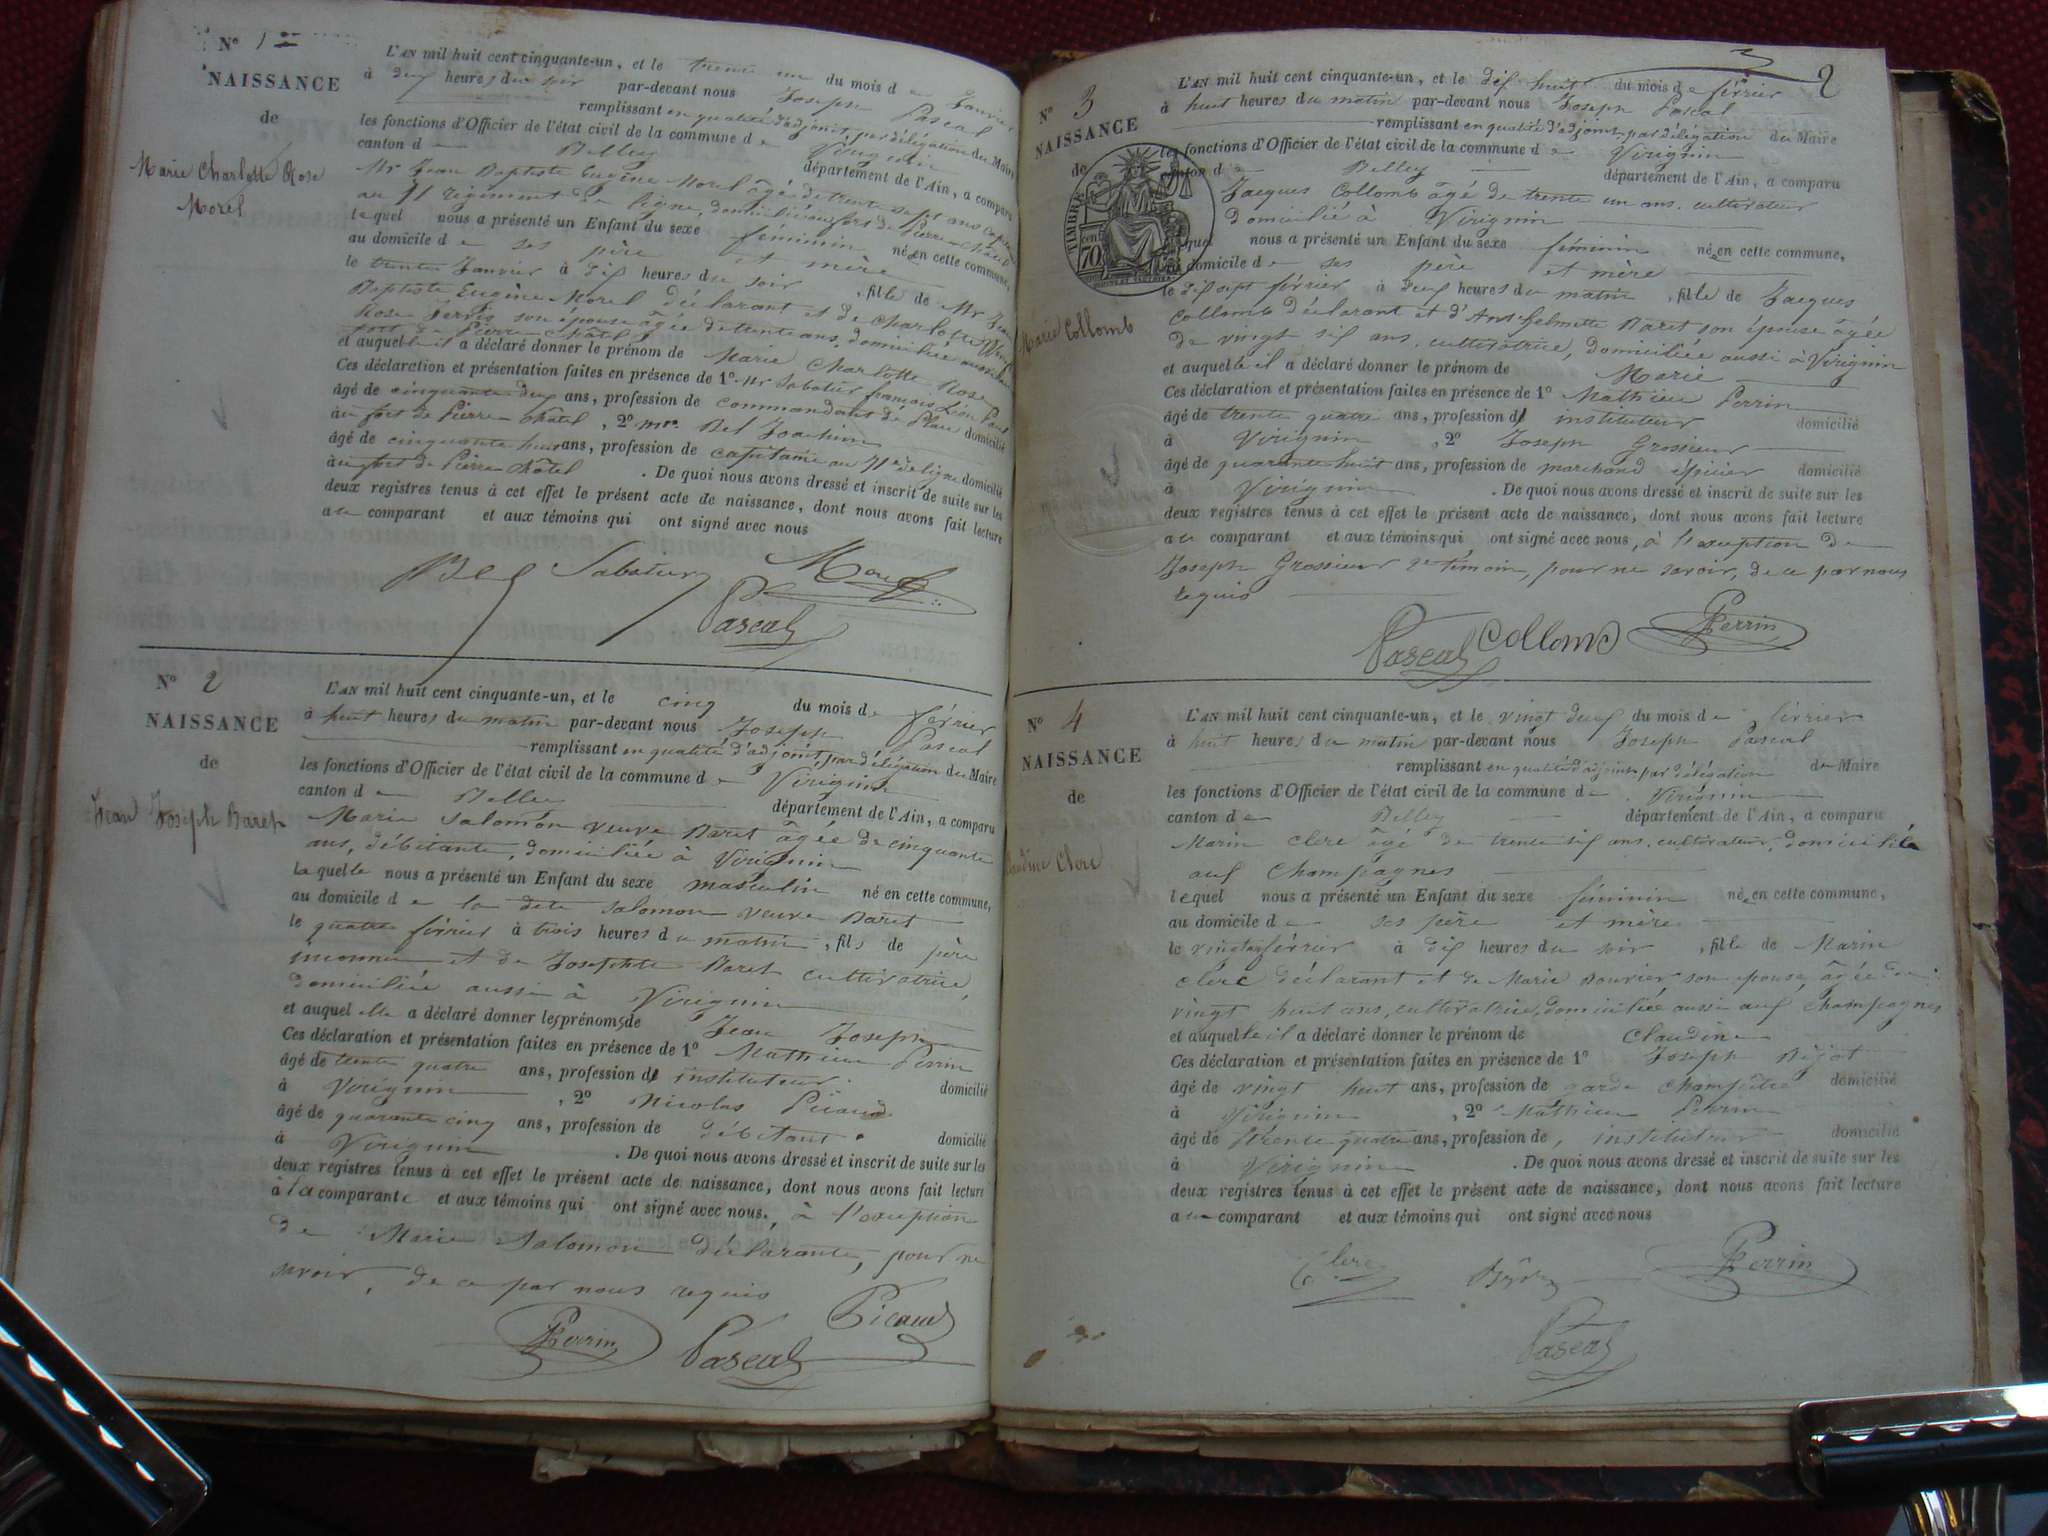 N° 1
NAISSANCE
de
Marie Charlotte Rose
Morel
L'AN mil huit cent cinquante-un, et le trente un du mois de Janvier
à deux heures du soir par-devant nous Joseph Pascal
remplissant en qualité d'adjoint, par délégation du Maire
les fonctions d'Officier de l'état civil de la commune de Virignin
canton de Belley département de l'Ain, a comparu
Mr Jean Baptiste Eugène Morel âgé de trente sept ans capitaine
au 71 régiment de ligne, domicilié au fort de Pierre Châtel
lequel nous a présenté un Enfant du sexe féminin né en cette commune,
au domicile de ses père et mère
le trente Janvier à dix heures du soir, fille de Mr Jean
Baptiste Eugène Morel déclarant et de Charlotte
Rose son épouse âgée de trente ans, domiciliée aussi au
fort de Pierre Châtel
et auquelle il a déclaré donner le prénom de Marie Charlotte Rose
Ces déclaration et présentation faites en présence de 1° Mr Sabatier françois Léon Paul
âgé de cinquante deux ans, profession de commandant de Place domicilié
au fort de Pierre Châtel, 2° Mr Bel Joachim
âgé de cinquante huit ans, profession de capitaine au 71e de ligne domicilié
au fort de Pierre Châtel. De quoi nous avons dressé et inscrit de suite sur les
deux registres tenus à cet effet le présent acte de naissance, dont nous avons fait lecture
au comparant et aux témoins qui ont signé avec nous
Bel Sabatier Morel
Pascal
N° 2
NAISSANCE
de
Jean Joseph Baret
L'AN mil huit cent cinquante-un, et le cinq du mois de février
à huit heures du matin par-devant nous Joseph Pascal
remplissant en qualité d'adjoint, par délégation du Maire
les fonctions d'Officier de l'état civil de la commune de Virignin
canton de Belley département de l'Ain, a comparu
Marie Salomon veuve Baret âgée de cinquante
ans, débitante, domiciliée à Virignin
laquelle nous a présenté un Enfant du sexe masculin né en cette commune,
au domicile de la dite Salomon veuve Baret
le quatre février à trois heures du matin, fils de père
inconnu et de Josephte Baret cultivatrice,
domiciliée aussi à Virignin
et auquel elle a déclaré donner les prénoms de Jean Joseph
Ces déclaration et présentation faites en présence de 1° Mathieu Perrin
âgé de trente quatre ans, profession d' instituteur domicilié
à Virignin, 2° Nicolas Picaud
âgé de quarante cinq ans, profession de débitant domicilié
à Virignin. De quoi nous avons dressé et inscrit de suite sur les
deux registres tenus à cet effet le présent acte de naissance, dont nous avons fait lecture
à la comparante et aux témoins qui ont signé avec nous, à l'exception
de Marie Salomon déclarante, pour ne
savoir, de ce par nous requis
Perrin Pascal Picaud
2
N° 3
NAISSANCE
de
TIMBRE
70 cen
Marie Collomb
L'AN mil huit cent cinquante-un, et le dix huit du mois de février
à huit heures du matin par-devant nous Joseph Pascal
remplissant en qualité d'adjoint, par délégation du Maire
les fonctions d'Officier de l'état civil de la commune de Virignin
canton de Belley département de l'Ain, a comparu
Jacques Collomb âgé de trente un ans, cultivateur
domicilié à Virignin
lequel nous a présenté un Enfant du sexe féminin née en cette commune,
au domicile de ses père et mère
le dix sept février à deux heures du matin, fille de Jacques
Collomb déclarant et d'Anthelmette Baret son épouse âgée
de vingt six ans, cultivatrice, domiciliée aussi à Virignin
et auquelle il a déclaré donner le prénom de Marie
Ces déclaration et présentation faites en présence de 1° Mathieu Perrin
âgé de trente quatre ans, profession d' instituteur domicilié
à Virignin, 2° Joseph Grossieur
âgé de quarante huit ans, profession de marchand épicier domicilié
à Virignin. De quoi nous avons dressé et inscrit de suite sur les
deux registres tenus à cet effet le présent acte de naissance, dont nous avons fait lecture
au comparant et aux témoins qui ont signé avec nous, à l'exception de
Joseph Grossieur 2e témoin, pour ne savoir, de ce par nous
requis
Pascal Collomb Perrin
N° 4
NAISSANCE
de
Claudine Clerc
L'AN mil huit cent cinquante-un, et le vingt deux du mois de février
à huit heures du matin par-devant nous Joseph Pascal
remplissant en qualité d'adjoint, par délégation du Maire
les fonctions d'Officier de l'état civil de la commune de Virignin
canton de Belley département de l'Ain, a comparu
Marin Clerc âgé de trente six ans, cultivateur, domicilié
aux Champagnes
lequel nous a présenté un Enfant du sexe féminin née en cette commune,
au domicile de ses père et mère
le février à dix heures du soir, fille de Marin
Clerc déclarant et de Marie Bouvier, son épouse, âgée de
vingt huit ans, cultivatrice, domiciliée aussi aux Champagnes
et auquelle il a déclaré donner le prénom de Claudine
Ces déclaration et présentation faites en présence de 1° Joseph
âgé de vingt huit ans, profession de garde champêtre domicilié
à Virignin, 2° Mathieu Perrin
âgé de trente quatre ans, profession de, instituteur domicilié
à Virignin. De quoi nous avons dressé et inscrit de suite sur les
deux registres tenus à cet effet le présent acte de naissance, dont nous avons fait lecture
au comparant et aux témoins qui ont signé avec nous
Clerc Perrin
Pascal